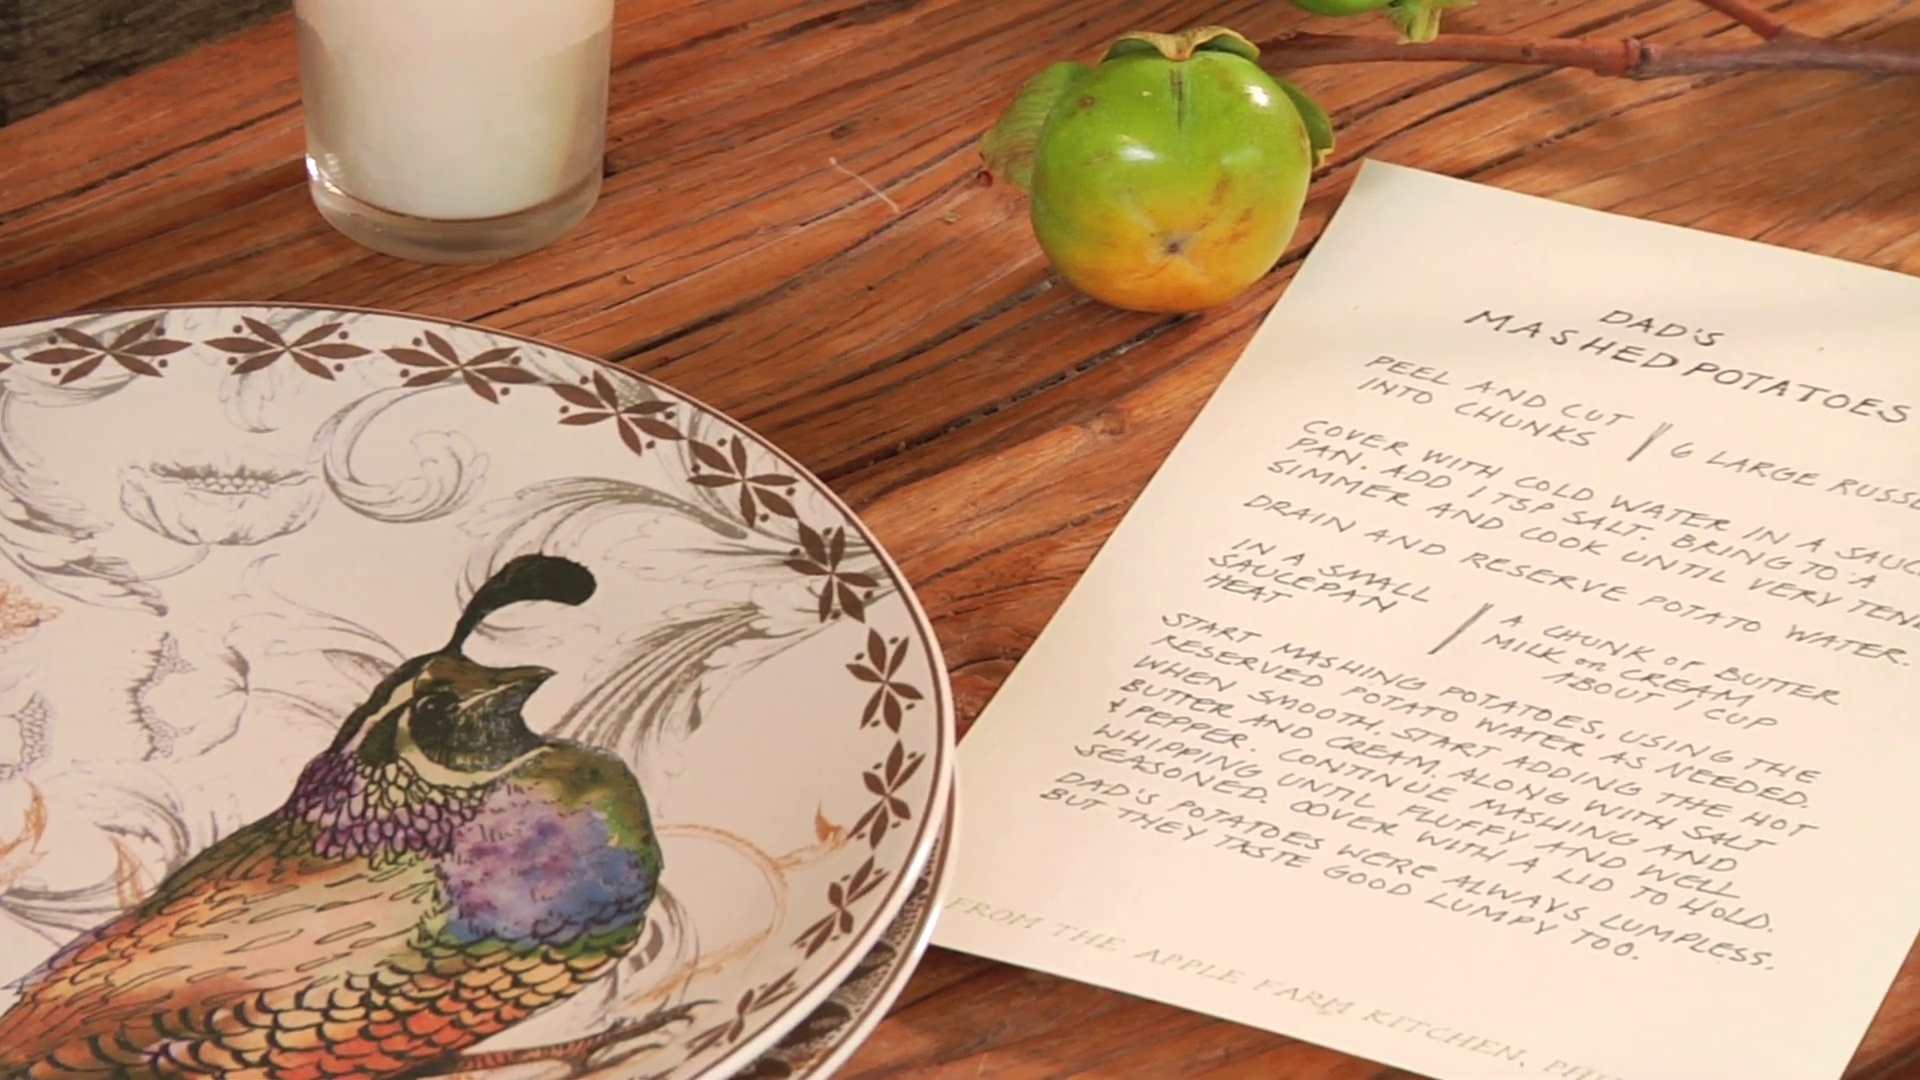 DAD'S
MASHED POTATOES
PEEL AND CUT
INTO CHUNKS
6 LARGE
COVER WITH COLD WATER IN A
PAN. ADD 1 TSP SALT. BRING TO A
SIMMER AND COOK UNTIL VERY
DRAIN AND RESERVE POTATO WATER.
IN A SMALL
SAUCEPAN
HEAT
A CHUNK OF BUTTER
MILK or CREAM
ABOUT 1 CUP
START MASHING POTATOES, USING THE
RESERVED POTATO WATER AS NEEDED.
WHEN SMOOTH, START ADDING THE HOT
BUTTER AND CREAM, ALONG WITH SALT
& PEPPER. CONTINUE MASHING AND
WHIPPING UNTIL FLUFFY AND WELL
SEASONED. COVER WITH A LID TO HOLD.
DAD'S POTATOES WERE ALWAYS LUMPLESS,
BUT THEY TASTE GOOD LUMPY TOO.
FROM THE APPLE FARM KITCHEN,